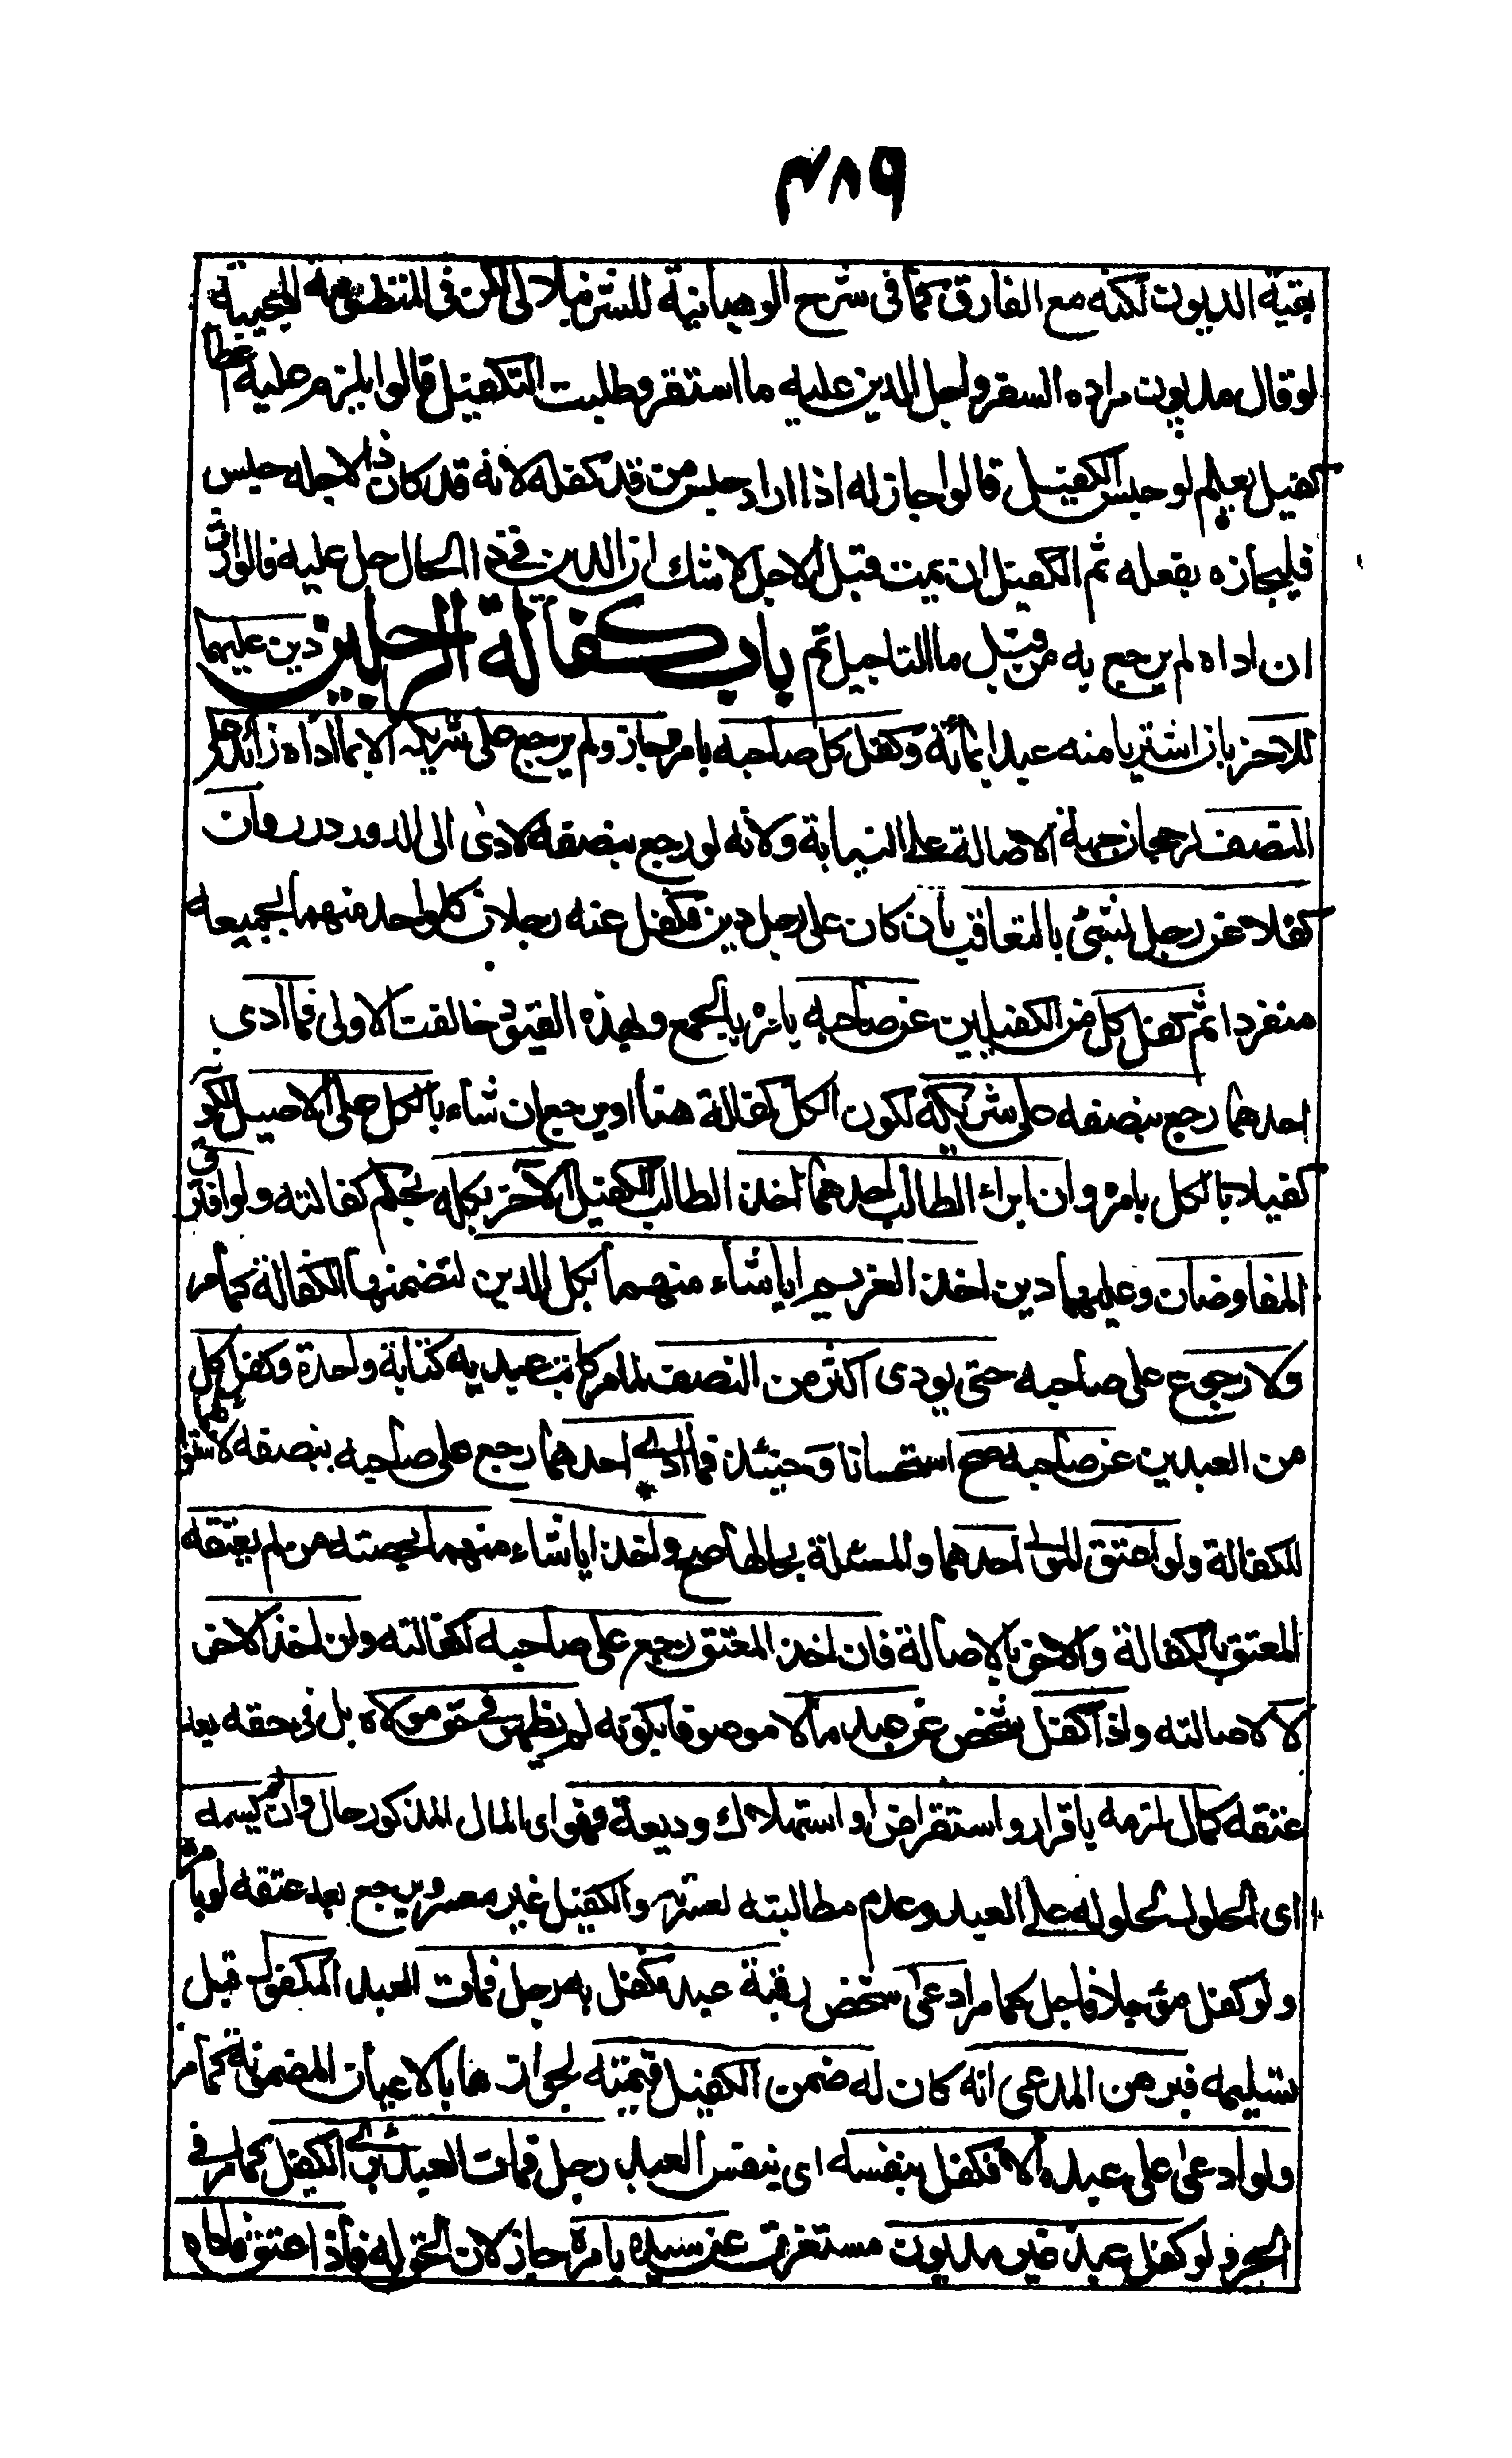 ٣٨٩
بقية الديون لكنه مع الفارق كما في شرح الوهبانية للشرنبلالي لكن في المنظومة المحبية
لو قال مديون مراده السفر واجل الدين عليه ما استقر وطلبت التكفيل قالوا يلزم عليه اعطا
كفيل يعلم لو حبس الكفيل قالوا جاز له اذا اراد حبس من قد كفله لانه قد كان ذا لاجله حبس
فليجازه بفعله ثم الكفيل ان يمت قبل الاجل لا شك ان الدين في ذا الحال حل عليه فالوارث
ان اداه لم يرجع به من قبل ما التاجيل تم باب كفالة الرجلين دين عليهما
للاخر بان اشتريا منه عبدا بمائة وكفل كل صاحبه بامره جاز ولم يرجع على شريكه الا بما اداه زائدا على
النصف لرجحان جهة الاصالة على النيابة ولانه لو رجع بنصفه لادى الى الدور درر وان
كفلا عن رجل لشئ بالتعاقب بان كان على رجل دين فكفل عنه رجلان كل واحد منهما بجميعه
منفردا ثم كفل كل من الكفيلين عن صاحبه بامره بالجميع وبهذه القيود خالفت الاولى فما ادى
احدهما رجع بنصفه على شريكه لكون الكل كفالة هنا او يرجع ان شاء بالكل على الاصيل لكونه
كفيلا بالكل بامره وان ابراء الطالب احدهما اخذ الطالب الكفيل الاخر بكله بحكم كفالته ولو افترق
المفاوضان وعليهما دين اخذ الغريم ايا شاء منهما بكل الدين لتضمنها الكفالة كما مر
ولا رجوع على صاحبه حتى يودى اكثر من النصف لما مر كاتب عبديه كتابة واحدة وكفل كل
من العبدين عن صاحبه صح استحسانا وحينئذ فما ادى احدهما رجع على صاحبه بنصفه لاستوائهما
للكفالة ولو اعتق المولى احدهما والمسئلة بحالها صح واخذ ايا شاء منهما بحصته من لم يعتقه
المعتق بالكفالة والاخر بالاصالة فان اخذ المعتق رجع على صاحبه لكفالته وان اخذ الاخر
لا لاصالته واذا كفل شخص عن عبد مالا موصوفا بكونه لم يظهر في حق مولاه بل في حقه بعد
عتقه كمال لزمه باقرار واستقراض او استهلاك وديعة فهو اى المال المذكور حال وان لم يسمه
اى الحلول لحلوله على العبد وعدم مطالبته لعسرته والكفيل غير معسر ويرجع بعد عتقه لو بامره
ولو كفل مؤجلا فاجل كما مر ادعى شخص رقبة عبد فكفل به رجل فمات العبد المكفول قبل
تسليمه فبرهن المدعى انه كان له ضمن الكفيل قيمته لجوازها بالاعيان المضمونة كما مر
ولو ادعى على عبد مالا فكفل بنفسه اى بنفس العبد رجل فمات العبد برئ الكفيل كما مر في
الحر ولو كفل عبد غير مديون مستغرق عن سيده بامره جاز لان الحق له فاذا اعتق فاداه